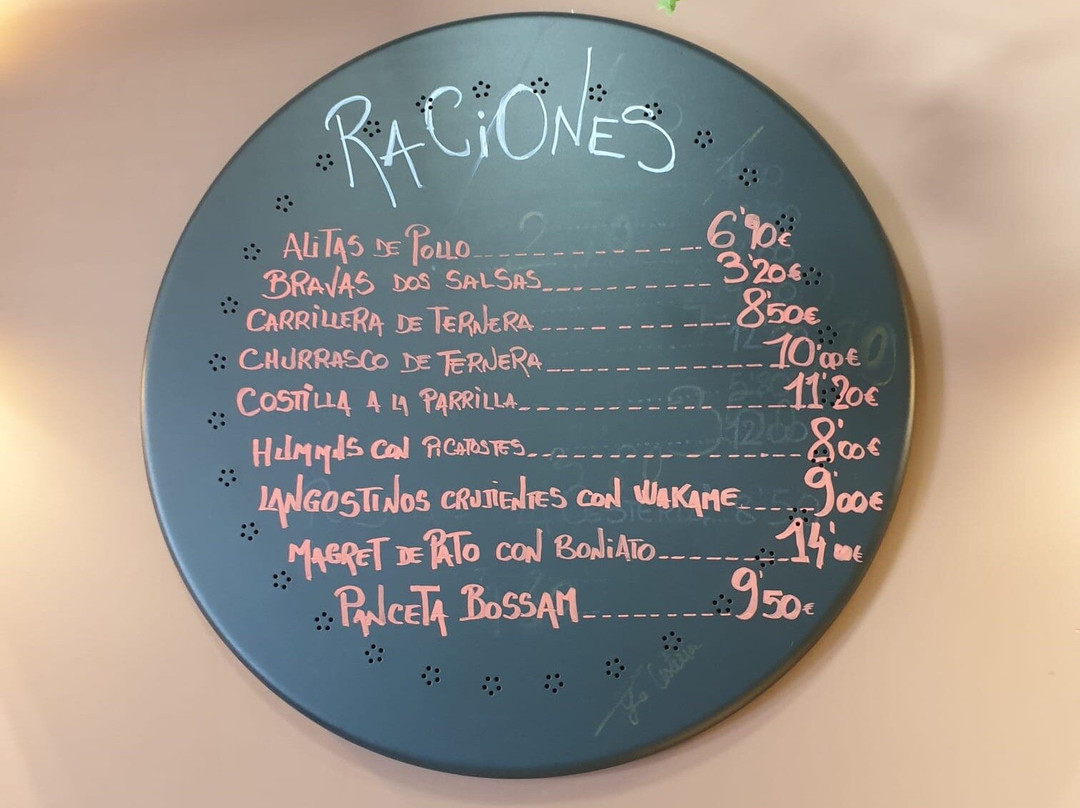 RACiONES
ALITAS DE POLLO 6'90€
BRAVAS DOS SALSAS 3'20€
CARRILLERA DE TERNERA 8'50€
CHURRASCO DE TERNERA 10'00€
COSTILLA A LA PARRILLA 11'20€
HUMMUS CON PICATOSTES 8'00€
LANGOSTINOS CRUJIENTES CON WAKAME 9'00€
MAGRET DE PATO CON BONIATO 14'00€
PANCETA BOSSAM 9'50€